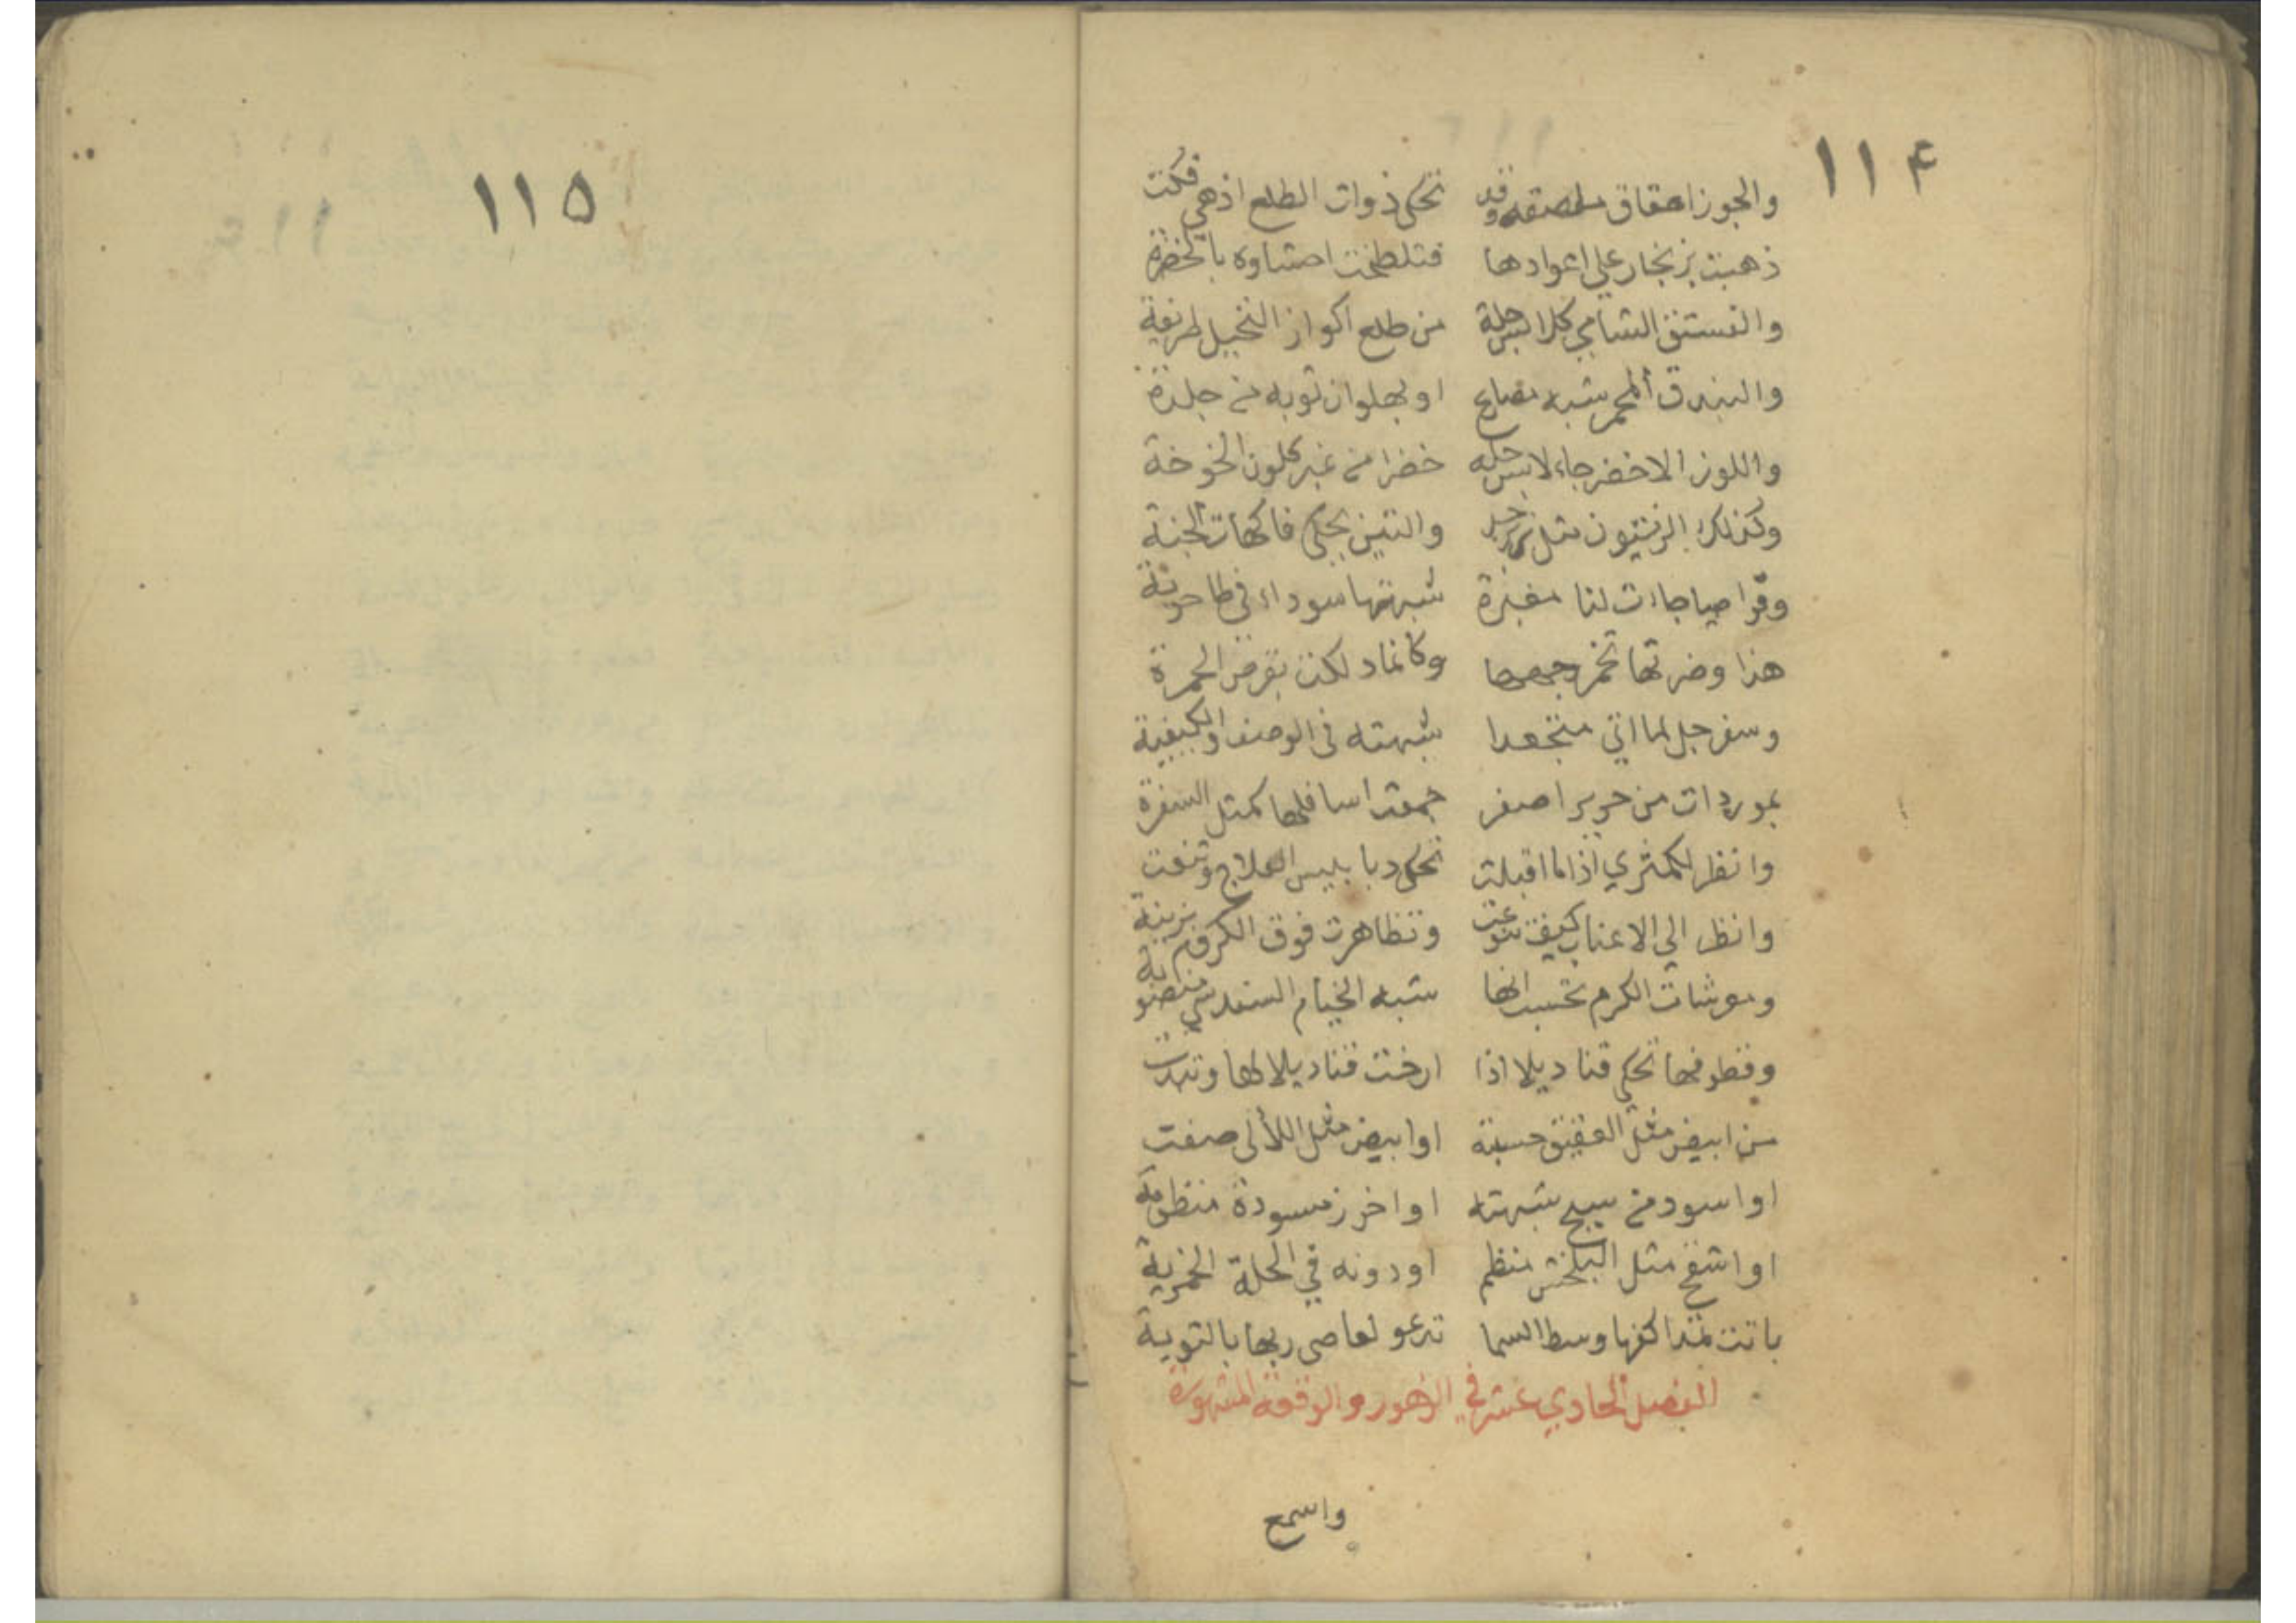 ١١٤
والجوز احقاق ملصقه وقد تحكي ذوات الطلع اذ هي فكت
ذهبت بزنجار علي اعوادها فتلطخت احشاوه بالخضرة
والفستق الشامي كلابس حلة من طلع اكواز النخيل طريفة
والبندق المحمر شبه او بهلوان ثوبه من جلدة
واللوز الاخضر جاء لابس حله خضرا من غبر كلون الخوخة
وكذلك الزيتون مثل زبرجد والتين يحكي فاكهات الجنة
وقراصيا جاءت لنا مغبرة شبهتها سوداء في طاحونة
هذا وضرتها تخمر وجهها وكانما دلكت بقرص الحمرة
وسفرجل لما اتي متجعدا شبهته في الوصف والكيفية
بموردات من حرير اصفر جمعت اسافلها كمثل السفرة
وانظر لكمثري اذا ما اقبلت تحكي دبابيس العلاج وتنعت
وانظر الي الاعناب كيف تنوعت وتظاهرت فوق الكروم بزينة
ومعرشات الكرم تحسب انها شبه الخيام السندسي منصوبة
وقطوفها تحكي قناديلا اذا ارخت قناديلا لها وتدلت
من ابيض مثل العقيق حسبته او ابيض مثل اللألي صفت
او اسود من سبج شبهته او اخرز مسودة منظومة
او اشقح مثل البلخش منظم او دونه في الحلة الخمرية
باتت تمد اكفها وسط السما تدعو لعاصي ربها بالتوبة
الفصل الحادي عشر في الزهور والوقعة المشهورة
واسمع
١١٥